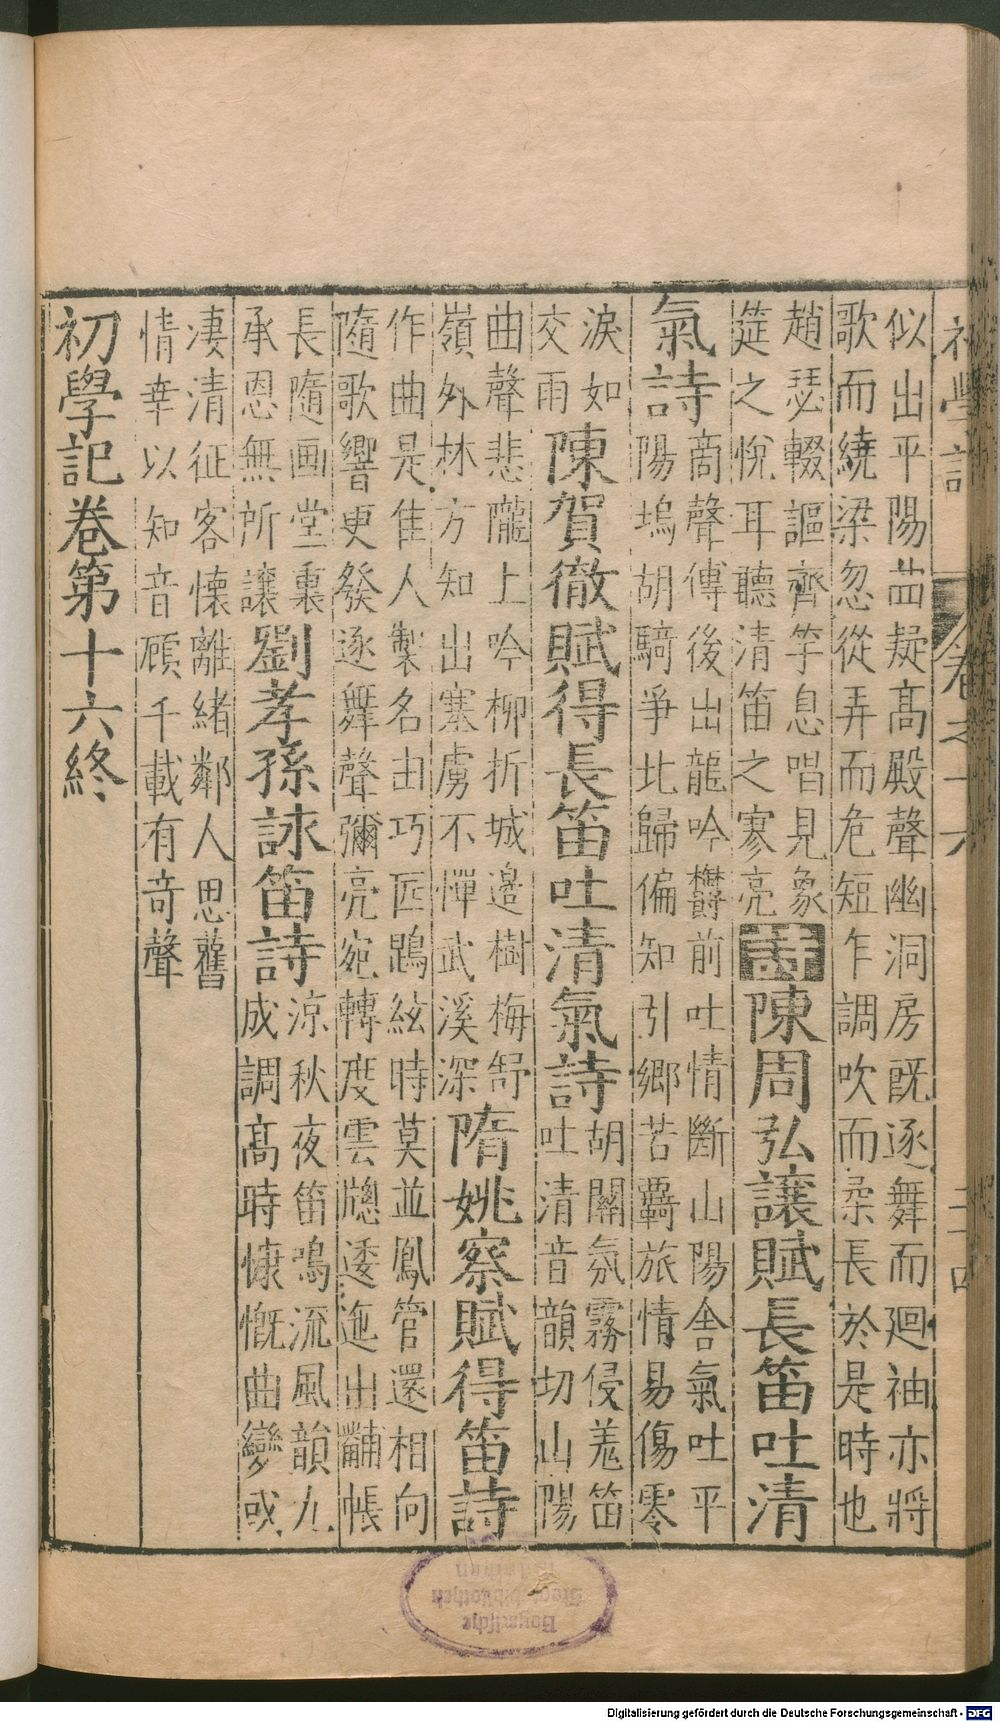 初學記 卷之十六
似出平陽曲疑髙殿聲幽洞房旣逐舞而廻袖亦將
歌而繞梁忽從弄而危短乍調吹而柔長於是時也
趙瑟輟謳齊竽息唱見象
筵之悅耳聽清笛之寥亮
詩陳周弘讓賦長笛吐清
氣詩
商聲傳後出龍吟欝前吐情斷山陽舍氣吐平
陽塢胡騎爭北歸偏知引鄉苦羇旅情易傷零
淚如
交雨
陳賀徹賦得長笛吐清氣詩
胡關氛霧侵羗笛
吐清音韻切山陽
曲聲悲隴上吟柳折城邊樹梅舒
嶺外林方知出塞虜不憚武溪深
隋姚察賦得笛詩
作曲是佳人製名由巧匠鵾絃時莫並鳳管還相向
隨歌響更發逐舞聲彌亮宛轉度雲牕逶迤出黼帳
長隨画堂裏
承恩無所讓
劉孝孫詠笛詩
涼秋夜笛鳴流風韻九
成調髙時慷慨曲變或
凄清征客懷離緒鄰人思舊
情幸以知音顧千載有竒聲
初學記卷第十六終
Bayerische
Staatsbibliothek
München
Digitalisierung gefördert durch die Deutsche Forschungsgemeinschaft - DFG